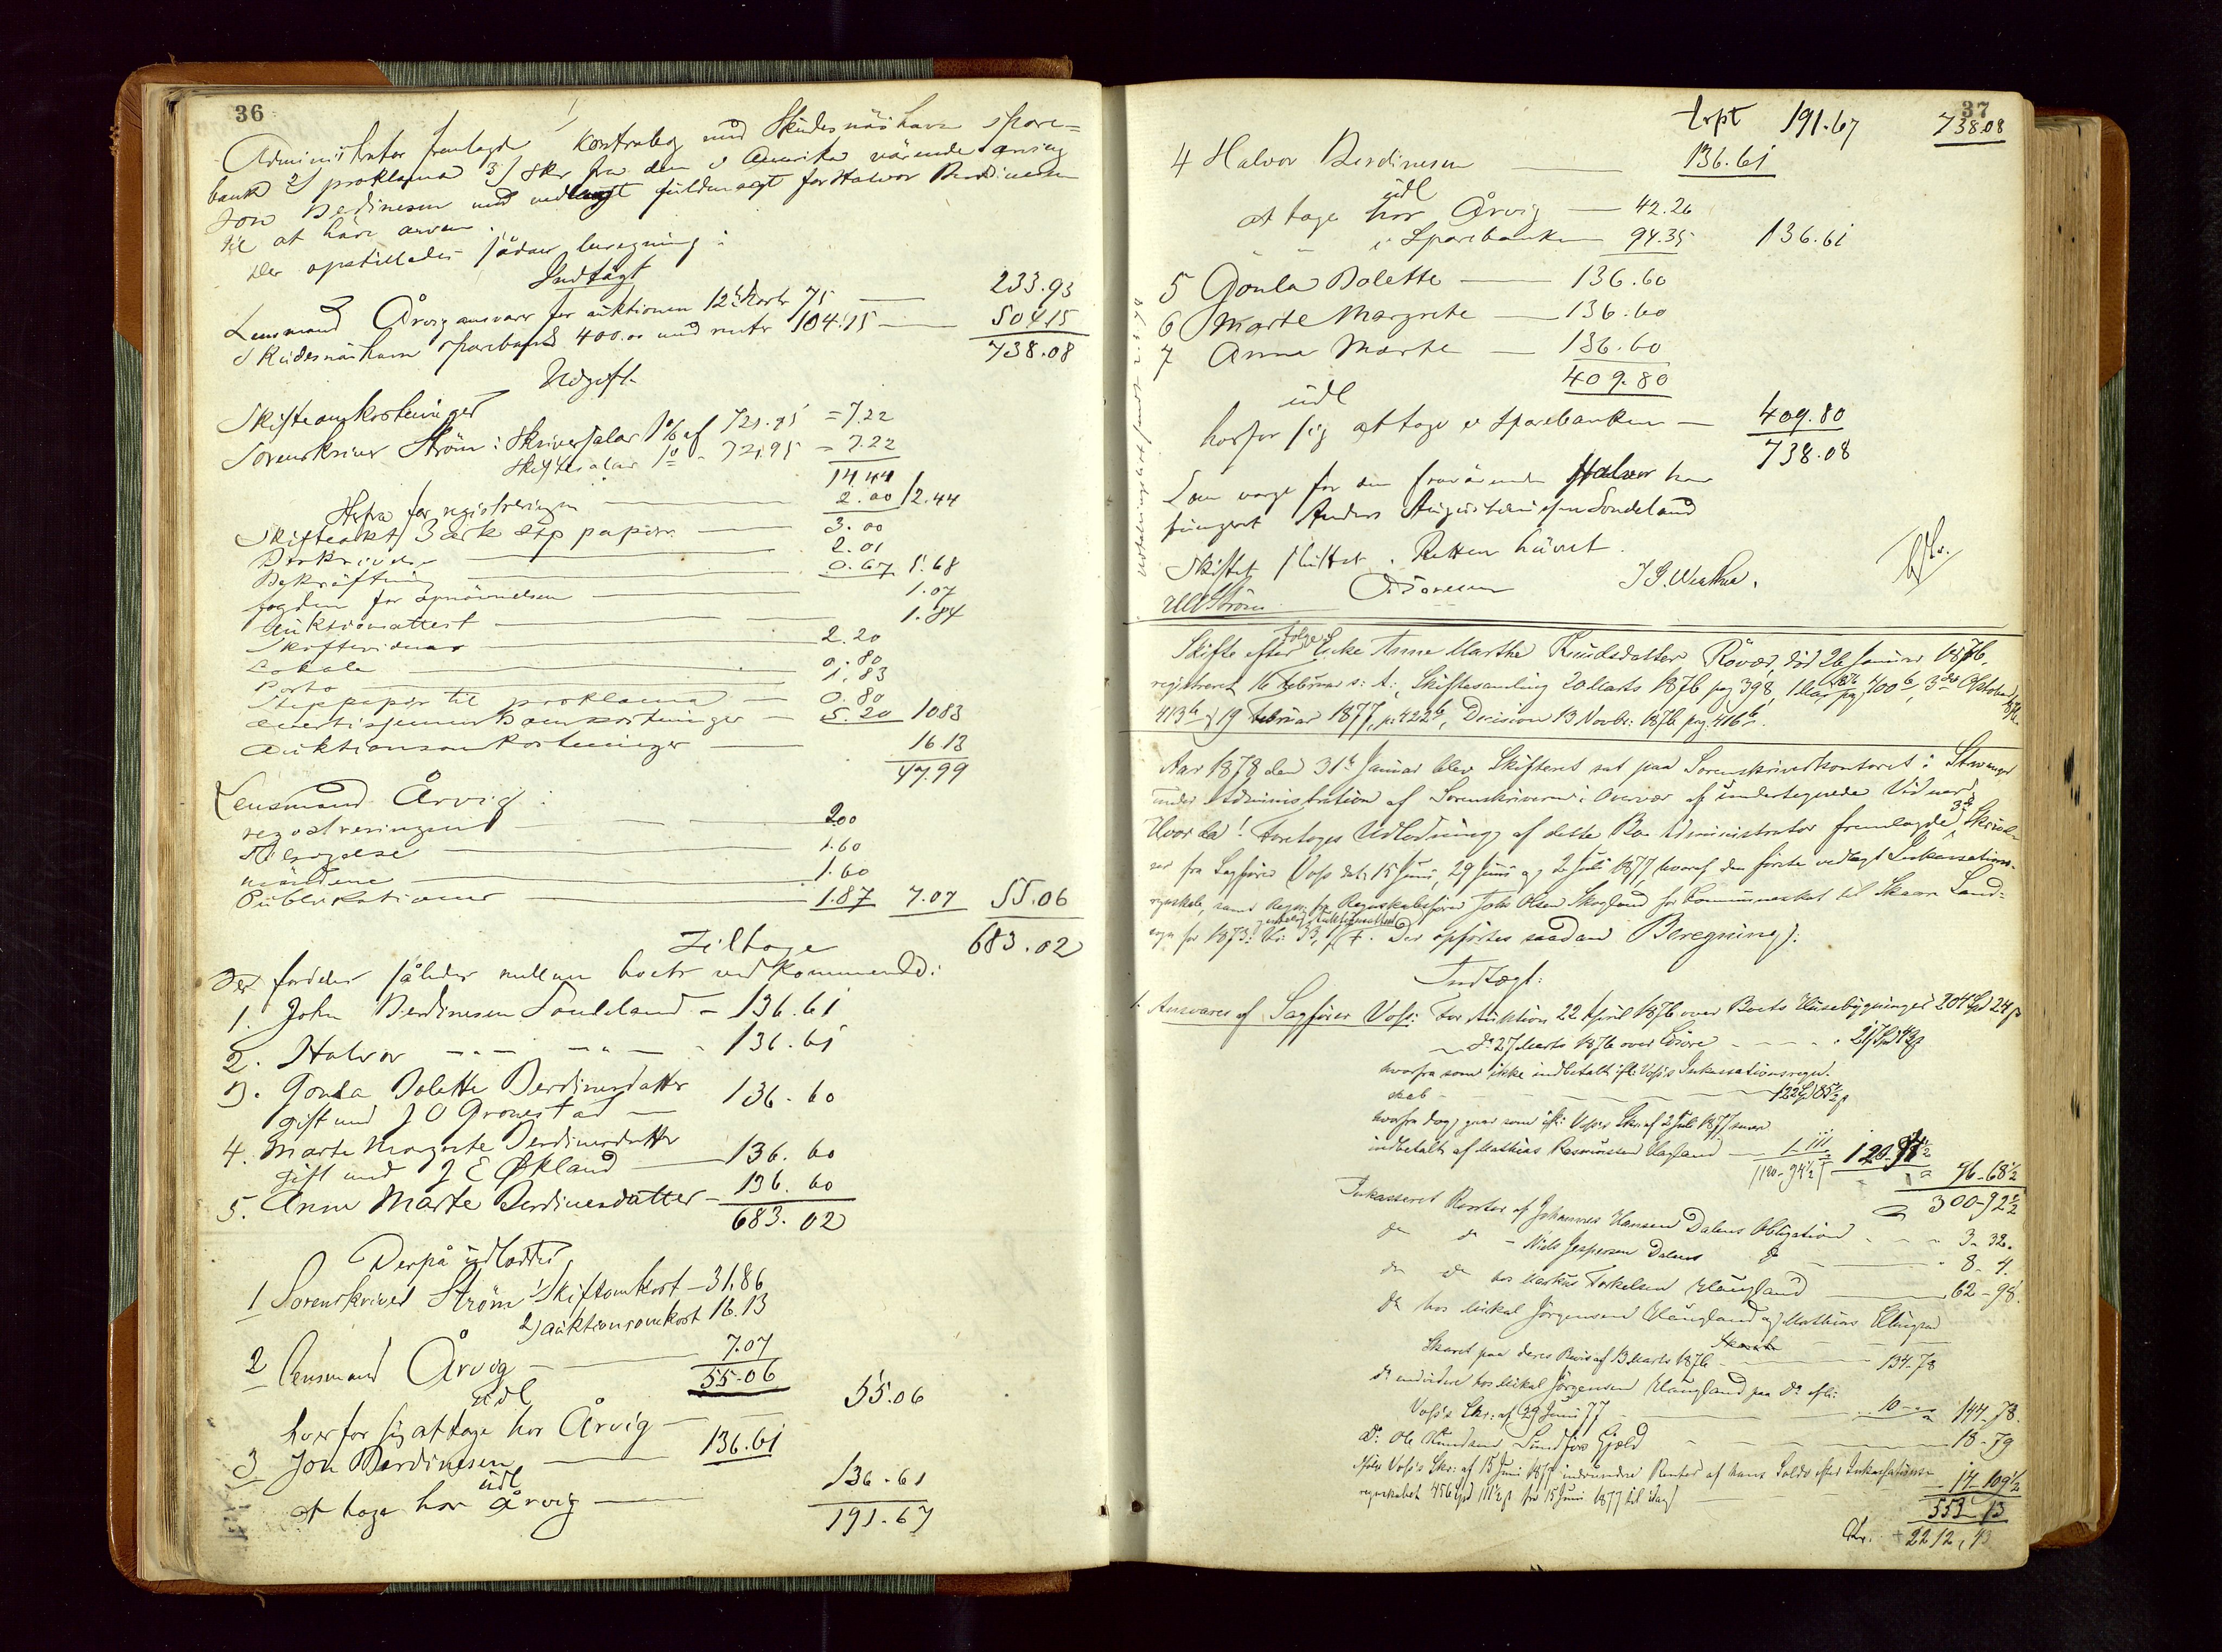 36
Administrator fremlagde 1/ Kontrabog med Skudesnæshavn spare=
bank 2/ proklama 3/ skr fra den i Amerika værende arving
Jon Berdinesen med vedlagt fuldmagt for Halvor Berdinesen
til at hæve arven.
Der opstilledes sådan beregning:
Indtægt
Lensmand Årvig ansvarer for auktionen 12 75 — 233.93
Skudesnæshavn sparebank 400.00 med renter 104.15 — 504.15
738.08
Udgift
Skifteomkostninger
Sorenskriver Ström: Skriversalar 1% af 721.95 = 7.22
Skiftesalar 1% - 721.95 = 7.22
14.44
Herfra for registreringen — 2.00 12.44
Skifteakt 3 ark stp papir — 3.00
Beskrivelse — 2.01
Bekræftning — 0.67 5.68
fogden for opnævnelsen — 1.07
Auktionsattest — 1.84
Skiftevidner — 2.20
Lokale — 0.80
Porto — 1.83
Stppapir til proklama — 0.80
avertissementsomkostninger — 5.20 10.83
Auktionsomkostninger — 16.13
47.99
Lensmand Årvig:
registreringen — 2.00
Tilsigelse — 1.60
mændene — 1.60
Publikationer — 1.87 7.07 55.06
Tilbage 683.02
Der fordeles således mellem boets vedkommende:
1. John Berdinesen Sondeland – 136.61
2. Halvor -"- -"- - 136.61
3. Gonla Bolette Berdinesdatter 136.60
gift med J O Gronestad —
4. Marte Margrete Berdinesdatter
gift med J E Økland — 136.60
5. Anne Marte Berdinesdatter – 136.60
683.02
Derpå udlodtes
1 Sorenskriver Ström 1) Skifteomkost – 31.86
2) auktionsomkost 16.13
2 Lensmand Årvig — 7.07
55.06
udl
hver for sig at tage hos Årvig — 55.06
3 Jon Berdinesen — 136.61
udl
at tage hos Årvig — 136.61
191.67
37
Trpt 191.67 738.08
4 Halvor Berdinesen — 136.61
udl
at tage hos Årvig — 42.26
" i Sparebanken 94.35 136.61
5 Gonla Bolette — 136.60
6 Marte Margrete — 136.60
7 Anna Marte — 136.60
409.80
udl
hver for sig at tage i Sparebanken — 409.80
738.08
Som værge for den fraværende Halvor har
fungeret Anders Augustinussen Sondeland
Skiftet sluttet. Retten hævet.
Ström
Skifte efter Enke Anne Marthe Knudsdatter Røvær, död 26 Januar 1876,
registreret 16 Februar s: A:, Skiftesamling 20 Marts 1876 pag 398, 1 Mai 1876 pag 400b, 3die Oktober
413b, 19 Februar 1877, p: 422b, Decision 13 Novbr: 1876 pag 416b.
Aar 1878 den 31te Januar blev Skifteret sat paa Sorenskriverkontoret i Stavanger
under Administration af Sorenskriveren i Overvær af undertegnede Vidner,
Hvorda! Foretoges Udlodning af dette Bo. Administrator fremlagde 3de Skrivel-
ser fra Sagfører Voss dat: 15 Juni, 29 Juni og 2 Juli 1877 hvoraf den første vedlagt Inkassations-
regnskab, samt Regn: fra Regnskabsfører John Olsen Skogland for Kommuneskat til Skaare Land-
sogn for 1873. Der opførtes saadan Beregning:
Indtægt:
1. Ansvares af Sagfører Voss: For Auktion 22 April 1876 over Boets Husebygninger 204 Spd 24 ß
do 27 Marts 1876 over Løsøre - - - 217 Spd
hvorfra som ikke indbetalt ifl: Voss's Inkassationsregn-
skab - - - 122 Spd 85½ ß
hvorfra dog gaar som ifl: Voss's Skr: af 2 Juli 1877 siden
indbetalt af Mathias Rasmussen Haugland — 1 - 111
120 - 94½ 96-68½
300-92½
Inkasseret Renter af Johannes Hansen Dalens Obligation - - - 3-32.
do do - Niels Jespersen Dalens do — 8-4.
do do hos Markus Torkelsen Haugland — 62-98.
do hos Mikal Jørgensen Haugland og Mathias
Skaret paa deres Bevis af 13 Marts 1876 — 134-78
do endvidere hos Mikal Jørgensen Haugland paa do ifl:
Voss's Skr: af 29 Juni 77 — 10 - " 144-78.
do: Ole Knudsen Sundfør Gjæld — 18-79
Ifølge Voss's Skr: af 15 Juni 1877 indvundne Renter af hans Saldo efter Inkassations-
regnskabet 456 Spd fra 15 Juni 1877 til idag — 14-109½
553-13
Kr. 2212,43